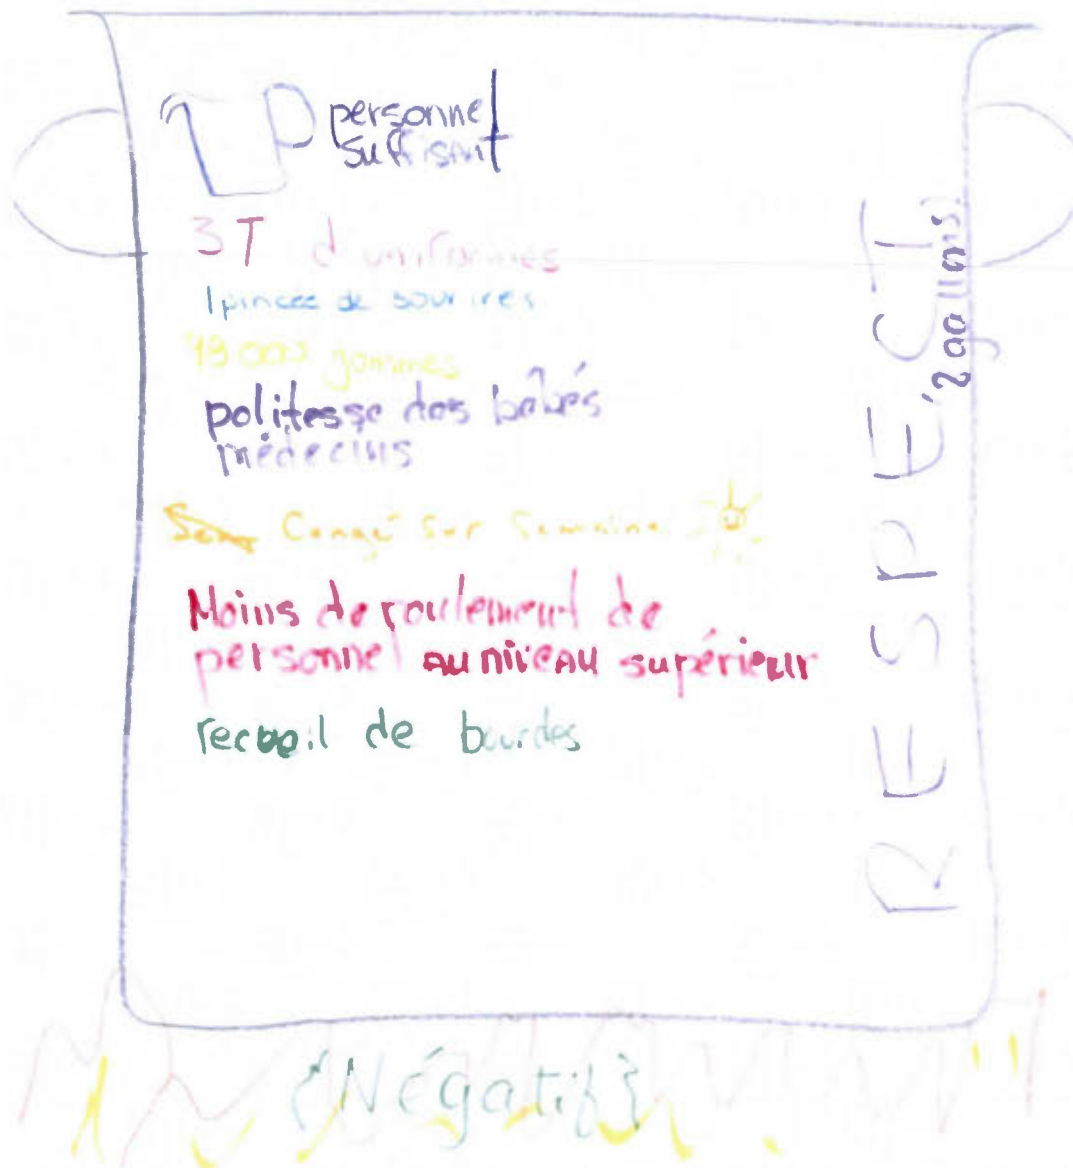 personnel
suffisant
3 T d'uniformes
1 pincée de sourires
93 000 gommes
politesse des bébés
médecins
Congé sur semaine
Moins de roulement de
personnel au niveau supérieur
recueil de bourdes
RESPECT
2 gallons
{Négatif}